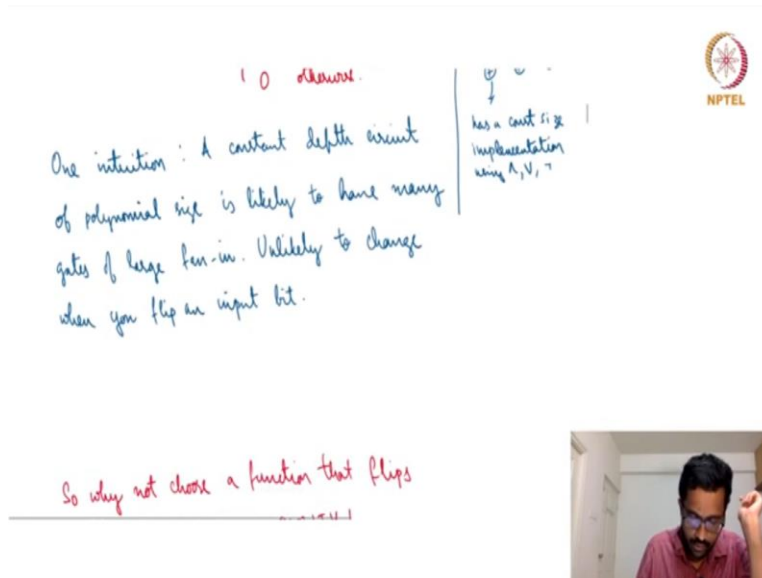 0 otherwise.
has a const size
implementation
using ∧, ∨, ¬
One intuition : A constant depth circuit
of polynomial size is likely to have many
gates of large fan-in. Unlikely to change
when you flip an input bit.
So why not choose a function that flips
NPTEL